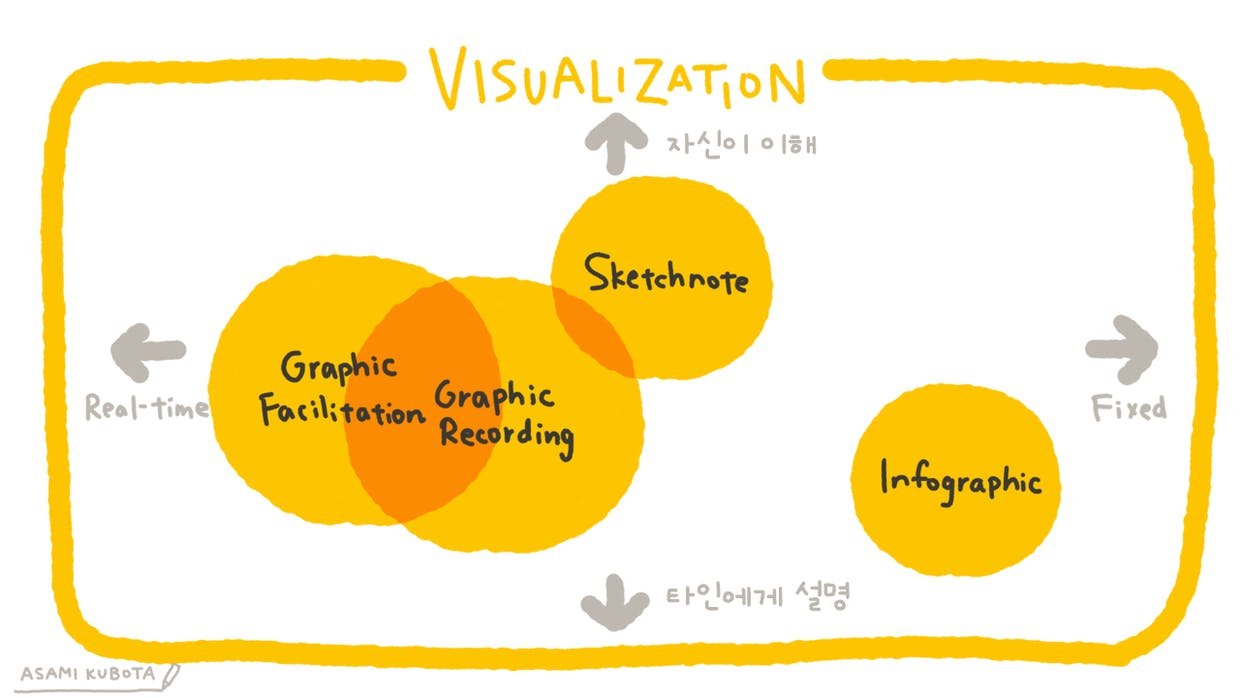 VISUALIZATION
자신이 이해
Sketchnote
Graphic
Facilitation
Graphic
Recording
Real-time
Fixed
Infographic
타인에게 설명
ASAMI KUBOTA